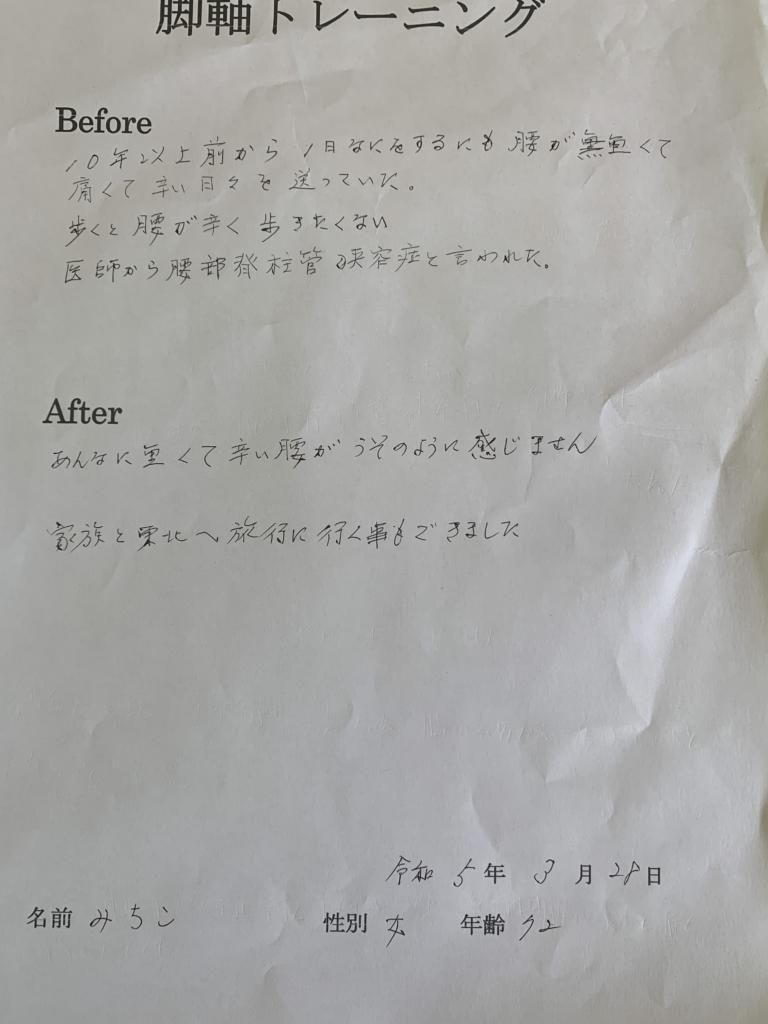 脚軸トレーニング
Before
10年以上前から1日なにをするにも腰が重くて
痛くて辛い日々を送っていた。
歩くと腰が辛く歩きたくない
医師から腰部脊柱管狭窄症と言われた。
After
あんなに重くて辛い腰がうそのように感じません
家族と東北へ旅行に行く事もできました
令和5年3月28日
名前 みちこ 性別 女 年齢 72